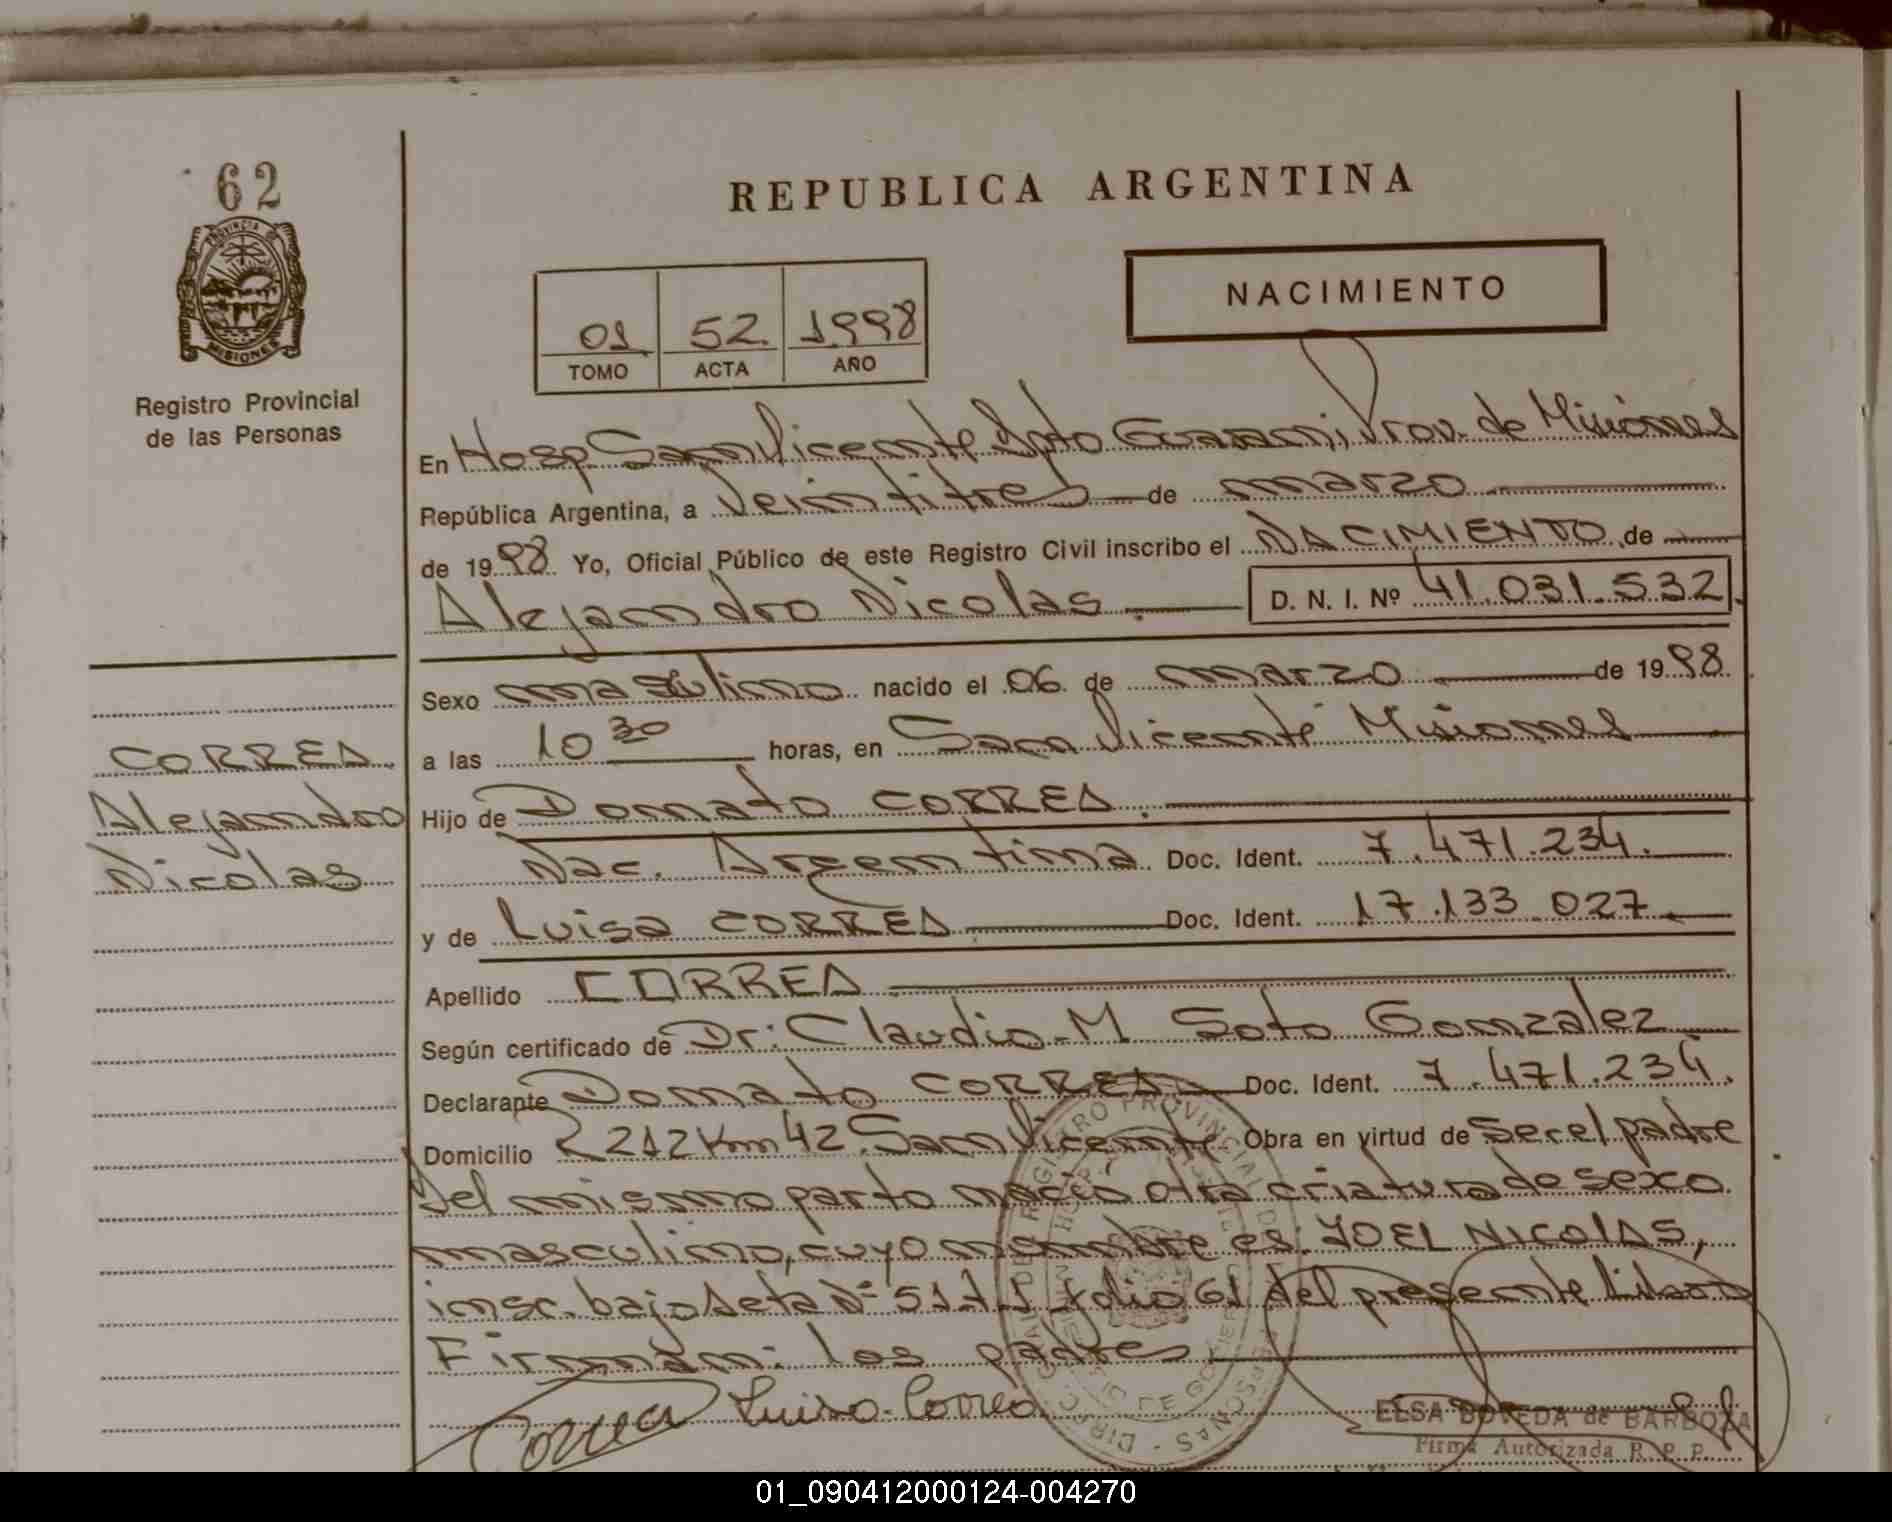 62
PROVINCIA DE
MISIONES
Registro Provincial
de las Personas
REPUBLICA ARGENTINA
NACIMIENTO
01 52. 1.998
TOMO ACTA AÑO
En Hosp San Vicente Dpto Guarani, Prov. de Misiones
República Argentina, a Veintitres de marzo
de 1998 Yo, Oficial Público de este Registro Civil inscribo el NACIMIENTO de
Alejandro Nicolas. D. N. I. Nº 41.031.532.
Sexo masculino nacido el 06 de marzo de 1998.
a las 10 30 horas, en San Vicente Misiones
CORREA
Alejandro
Nicolas
Hijo de Donato CORREA.
Nac. Argentina. Doc. Ident. 7.471.234.
y de Luisa CORREA Doc. Ident. 17.133.027.
Apellido CORREA
Según certificado de Dr: Claudio-M Soto Gonzalez
Declarante Donato CORREA Doc. Ident. 7.471.234.
Domicilio R 212 Km 42. San Vicente Obra en virtud de Ser el padre
Del mismo parto nació otra criatura de sexo
masculino, cuyo nombre es: JOEL NICOLAS,
insc. bajo Acta Nº 51 T-1 folio 61 del presente Libro
Firman: los padres
Correa Luisa Correa
ELSA BOVEDA de BARBOZA
Firma Autorizada R. P. P.
01_090412000124-004270